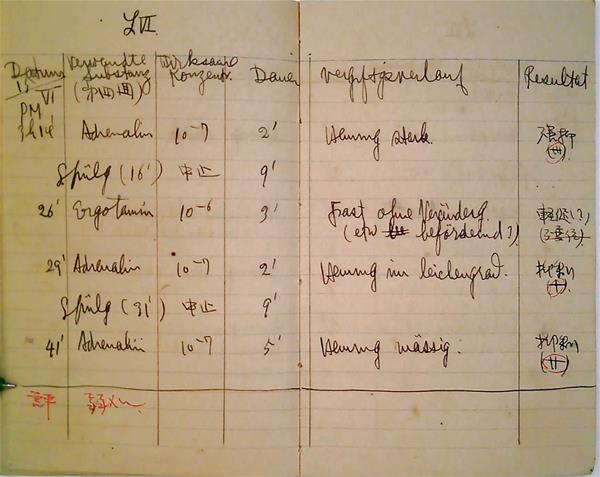 LVI.
Datum verwendte Substanz (第四回) Wirksam Konzentr. Dauer Vergiftgsverlauf Resultat
15/VI
PM
3h14' Adrenalin 10-7 2' Hemmg stark. 強抑
(卌)
Spülg (16') 中止 9'
26' Ergotamin 10-6 3' Fast ohne Veränderg. 軽促(?)
(etw befördernd?)
29' Adrenalin 10-7 2' Hemmg im leichen grad. 抑制
(+)
Spülg (31') 中止 9'
41' Adrenalin 10-7 5' Hemmg mässig. 抑制
(++)
評